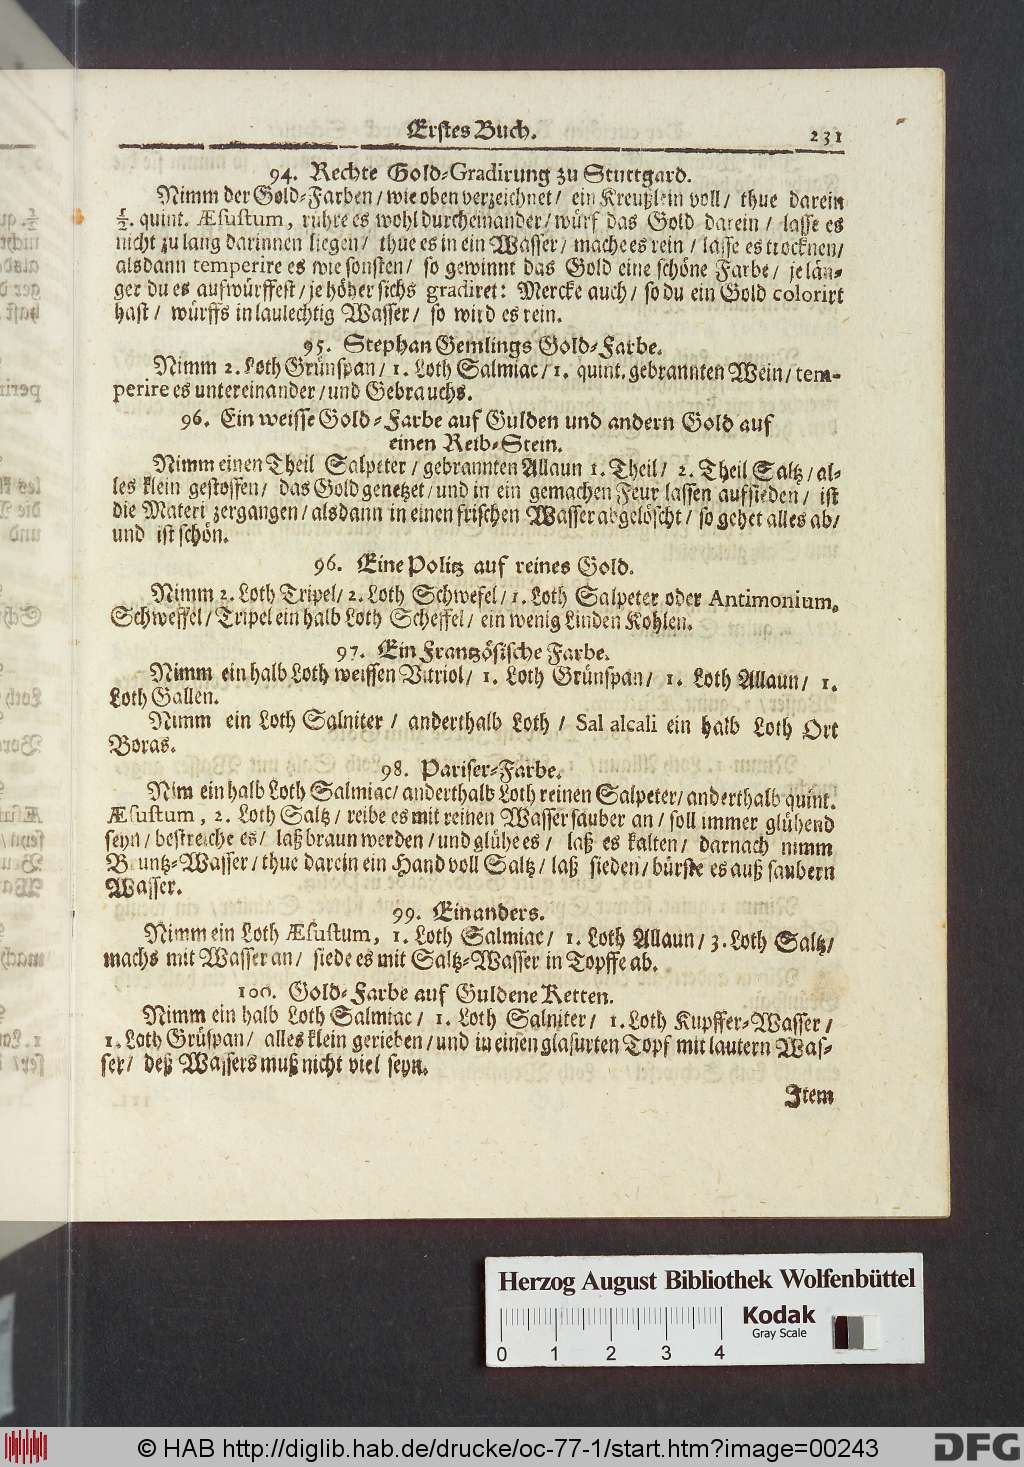 Erstes Buch. 231
94. Rechte Gold-Gradirung zu Stuttgard.
Nimm der Gold-Farben/ wie oben verzeichnet/ ein Kreußlein voll/ thue darein
½. quint. Æsustum, rühre es wohl durcheinander/ würf das Gold darein/ lasse es
nicht zu lang darinnen liegen/ thue es in ein Wasser/ mache es rein/ lasse es trocknen/
alsdann temperire es wie sonsten/ so gewinnt das Gold eine schöne Farbe/ je län-
ger du es aufwürffest/ je höher sichs gradiret: Mercke auch/ so du ein Gold colorirt
hast/ würffs in laulechtig Wasser/ so wird es rein.
95. Stephan Gemlings Gold-Farbe.
Nimm 2. Loth Grünspan/ 1. Loth Salmiac/ 1. quint. gebrannten Wein/ tem-
perire es untereinander/ und Gebrauchs.
96. Ein weisse Gold-Farbe auf Gulden und andern Gold auf
einen Reib-Stein.
Nimm einen Theil Salpeter/ gebrannten Allaun 1. Theil/ 2. Theil Saltz/ al-
les klein gestossen/ das Gold genetzet/ und in ein gemachen Feur lassen aufsieden/ ist
die Materi zergangen/ alsdann in einen frischen Wasser abgelöscht/ so gehet alles ab/
und ist schön.
96. Eine Politz auf reines Gold.
Nimm 2. Loth Tripel/ 2. Loth Schwefel/ 1. Loth Salpeter oder Antimonium,
Schweffel/ Tripel ein halb Loth Scheffel/ ein wenig Linden Kohlen.
97. Ein Frantzösische Farbe.
Nimm ein halb Loth weissen Vitriol/ 1. Loth Grünspan/ 1. Loth Allaun/ 1.
Loth Gallen.
Nimm ein Loth Salniter/ anderthalb Loth/ Sal alcali ein halb Loth Ort
Boras.
98. Pariser-Farbe.
Nim ein halb Loth Salmiac/ anderthalb Loth reinen Salpeter/ anderthalb quint.
Æsustum, 2. Loth Saltz/ reibe es mit reinen Wasser sauber an/ soll immer glühend
seyn/ bestreiche es/ laß braun werden/ und glühe es/ laß es kalten/ darnach nimm
Bruntz-Wasser/ thue darein ein Hand voll Saltz/ laß sieden/ bürste es auß saubern
Wasser.
99. Ein anders.
Nimm ein Loth Æsustum, 1. Loth Salmiac/ 1. Loth Allaun/ 3. Loth Saltz/
machs mit Wasser an/ siede es mit Saltz-Wasser in Topffe ab.
100. Gold-Farbe auf Guldene Ketten.
Nimm ein halb Loth Salmiac/ 1. Loth Salniter/ 1. Loth Kupffer-Wasser/
1. Loth Grüspan/ alles klein gerieben/ und in einen glasurten Topf mit lautern Was-
ser/ deß Wassers muß nicht viel seyn.
Item
Herzog August Bibliothek Wolfenbüttel
Kodak
Gray Scale
0 1 2 3 4
© HAB http://diglib.hab.de/drucke/oc-77-1/start.htm?image=00243
DFG